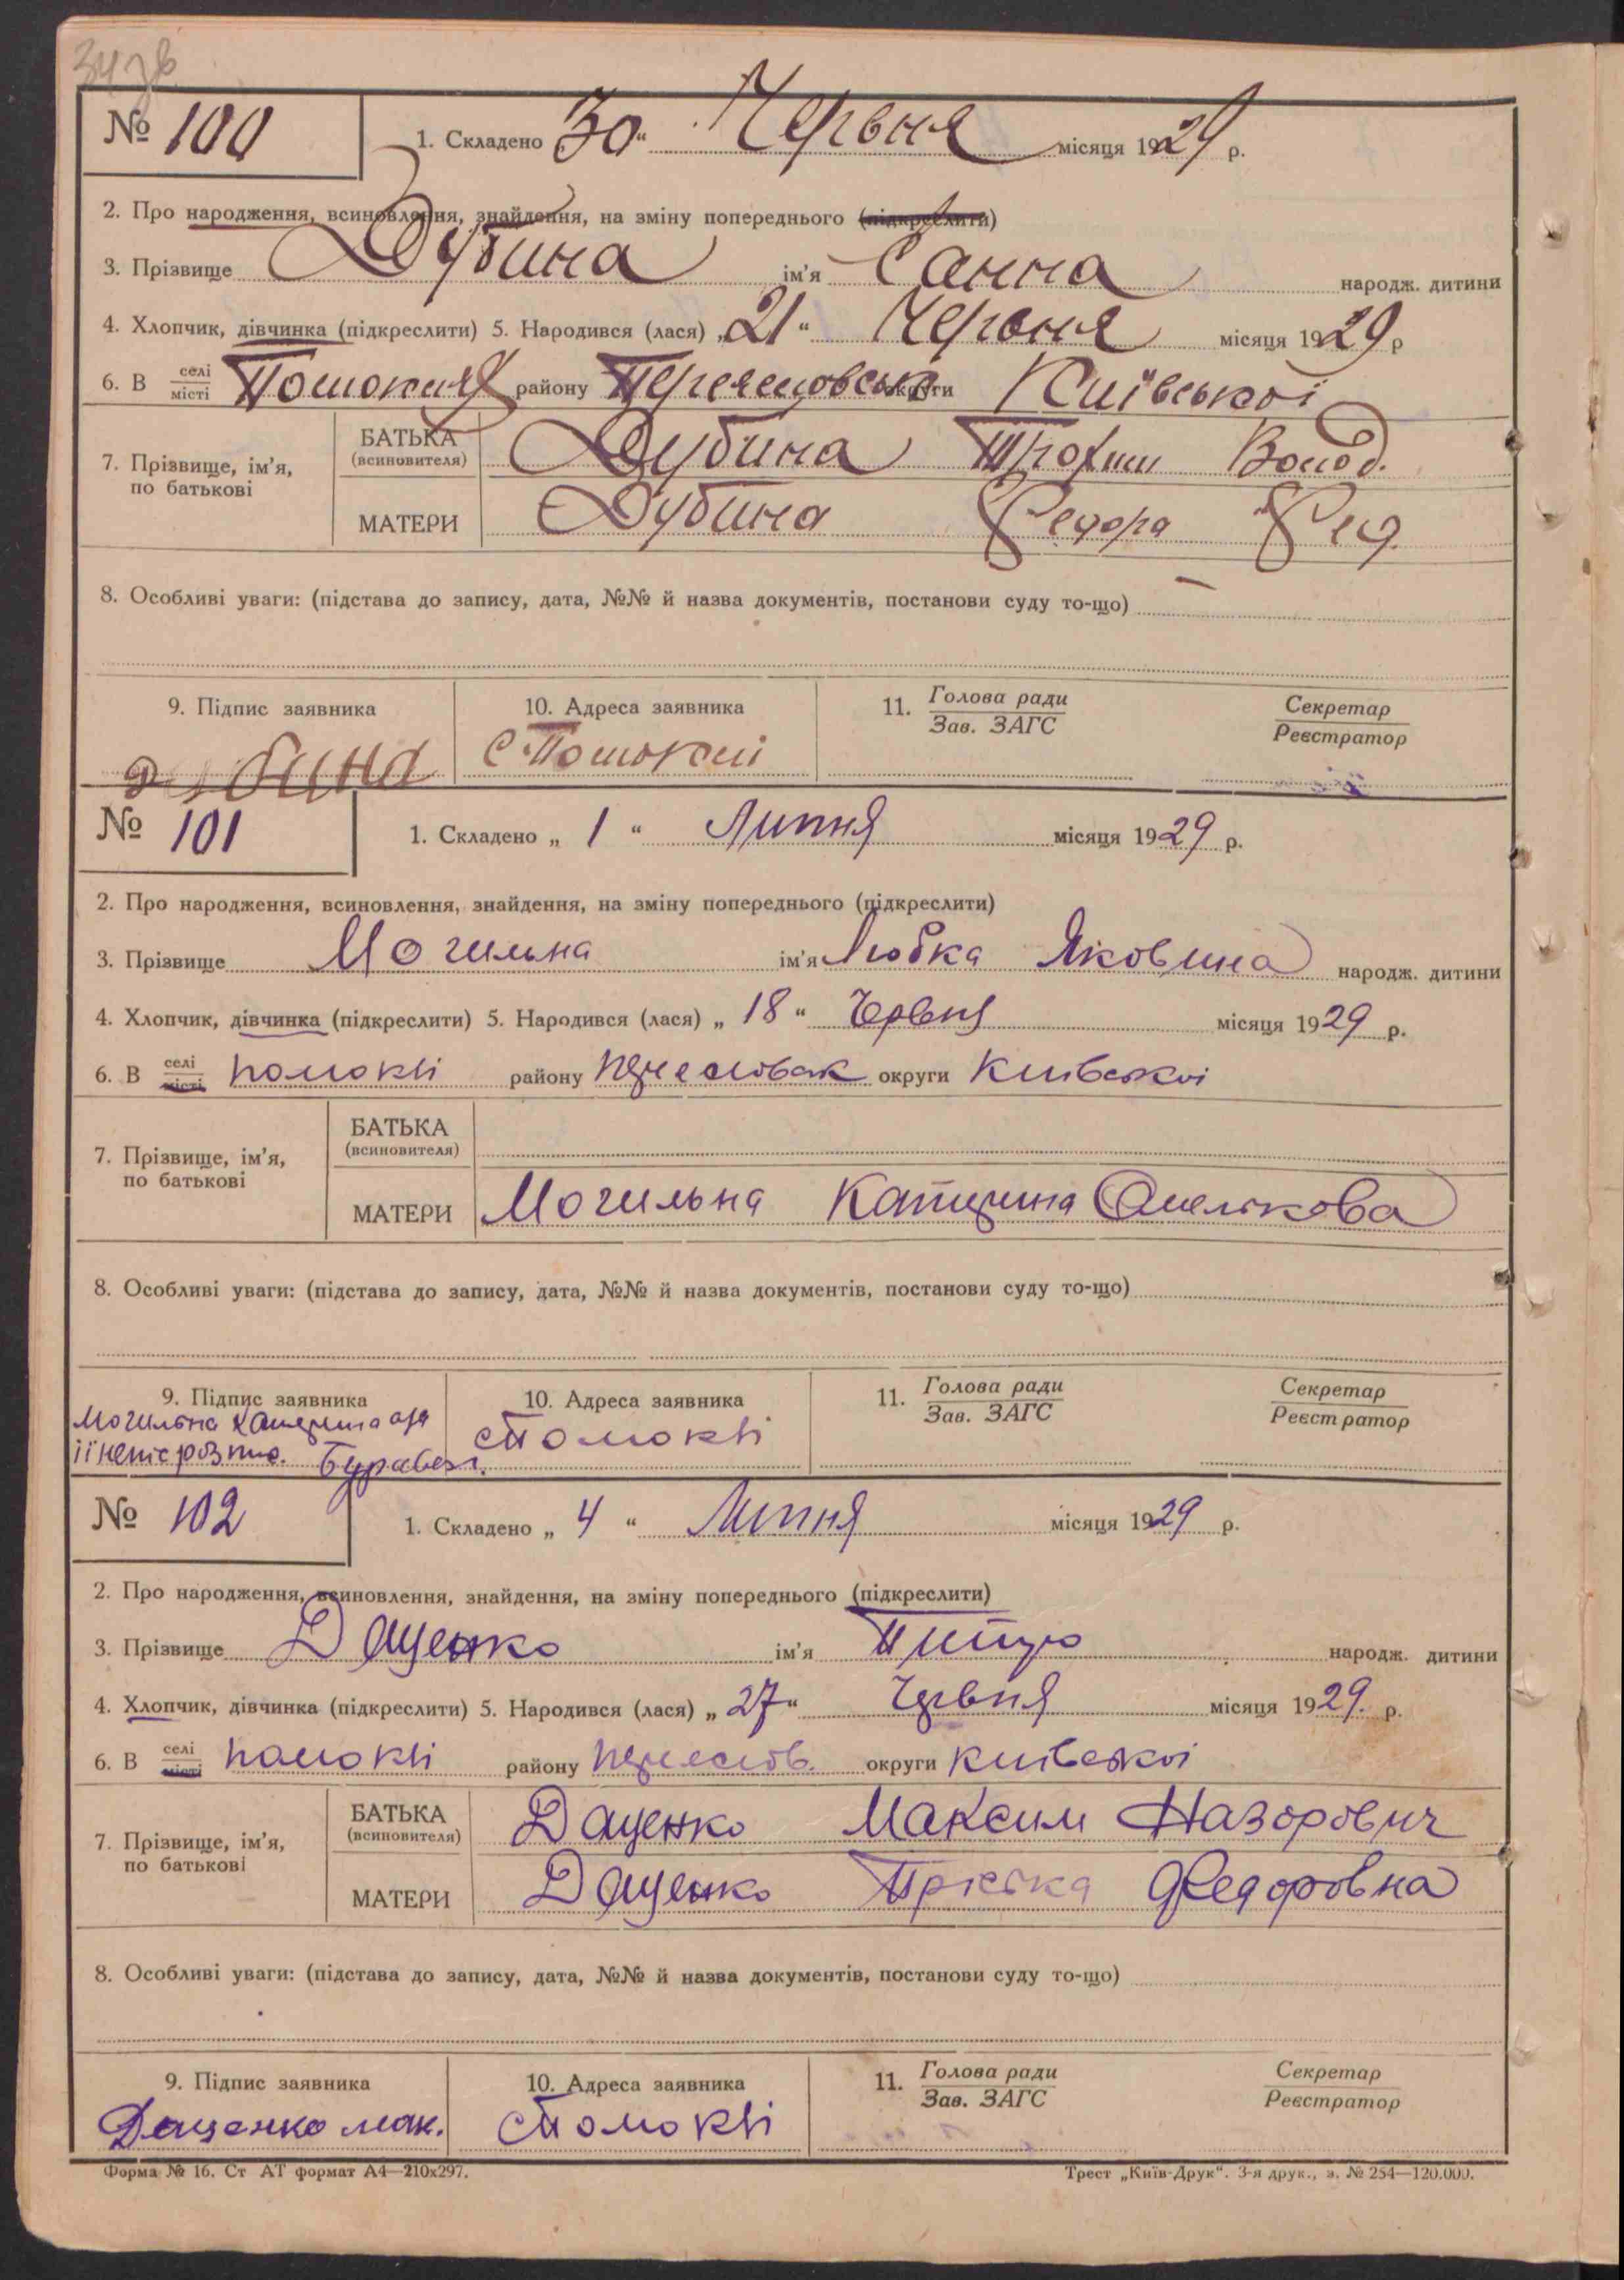 № 100
1. Складено „30“ Червня місяця 1929 р.
2. Про народження, всиновлення, знайдення, на зміну попереднього (підкреслити)
3. Прізвище Дубина ім'я Ганна народж. дитини
4. Хлопчик, дівчинка (підкреслити) 5. Народився (лася) „21“ Червня місяця 1929 р
6. В селі місті району округи Київської
7. Прізвище, ім'я, по батькові
БАТЬКА (всиновителя) Дубина Трохим Волод.
МАТЕРИ Дубина Федора Фед.
8. Особливі уваги: (підстава до запису, дата, №№ й назва документів, постанови суду то-що) —
9. Підпис заявника
10. Адреса заявника
11. Голова ради Зав. ЗАГС
Секретар Реєстратор
Дубина
№ 101
1. Складено „ 1 “ Липня місяця 1929 р.
2. Про народження, всиновлення, знайдення, на зміну попереднього (підкреслити)
3. Прізвище Могильна ім'я Любка Яковина народж. дитини
4. Хлопчик, дівчинка (підкреслити) 5. Народився (лася) „ 18 “ Червня місяця 1929 р.
6. В селі місті помокні району округи Київської
7. Прізвище, ім'я, по батькові
БАТЬКА (всиновителя)
МАТЕРИ Могильна Катерина Омелькова
8. Особливі уваги: (підстава до запису, дата, №№ й назва документів, постанови суду то-що)
9. Підпис заявника
10. Адреса заявника
11. Голова ради Зав. ЗАГС
Секретар Реєстратор
Могильна Катерина
№ 102
1. Складено „ 4 “ Липня місяця 1929 р.
2. Про народження, всиновлення, знайдення, на зміну попереднього (підкреслити)
3. Прізвище Даценко ім'я народж. дитини
4. Хлопчик, дівчинка (підкреслити) 5. Народився (лася) „ 27 “ Червня місяця 1929. р.
6. В селі місті помокні району округи Київської
7. Прізвище, ім'я, по батькові
БАТЬКА (всиновителя) Даценко Максим Назорович
МАТЕРИ Даценко Пріська Федоровна
8. Особливі уваги: (підстава до запису, дата, №№ й назва документів, постанови суду то-що)
9. Підпис заявника
10. Адреса заявника
11. Голова ради Зав. ЗАГС
Секретар Реєстратор
Даценко мак.
Форма № 16. Ст АТ формат А4—210х297.
Трест „Київ-Друк“. 3-я друк., з. № 254—120.000.